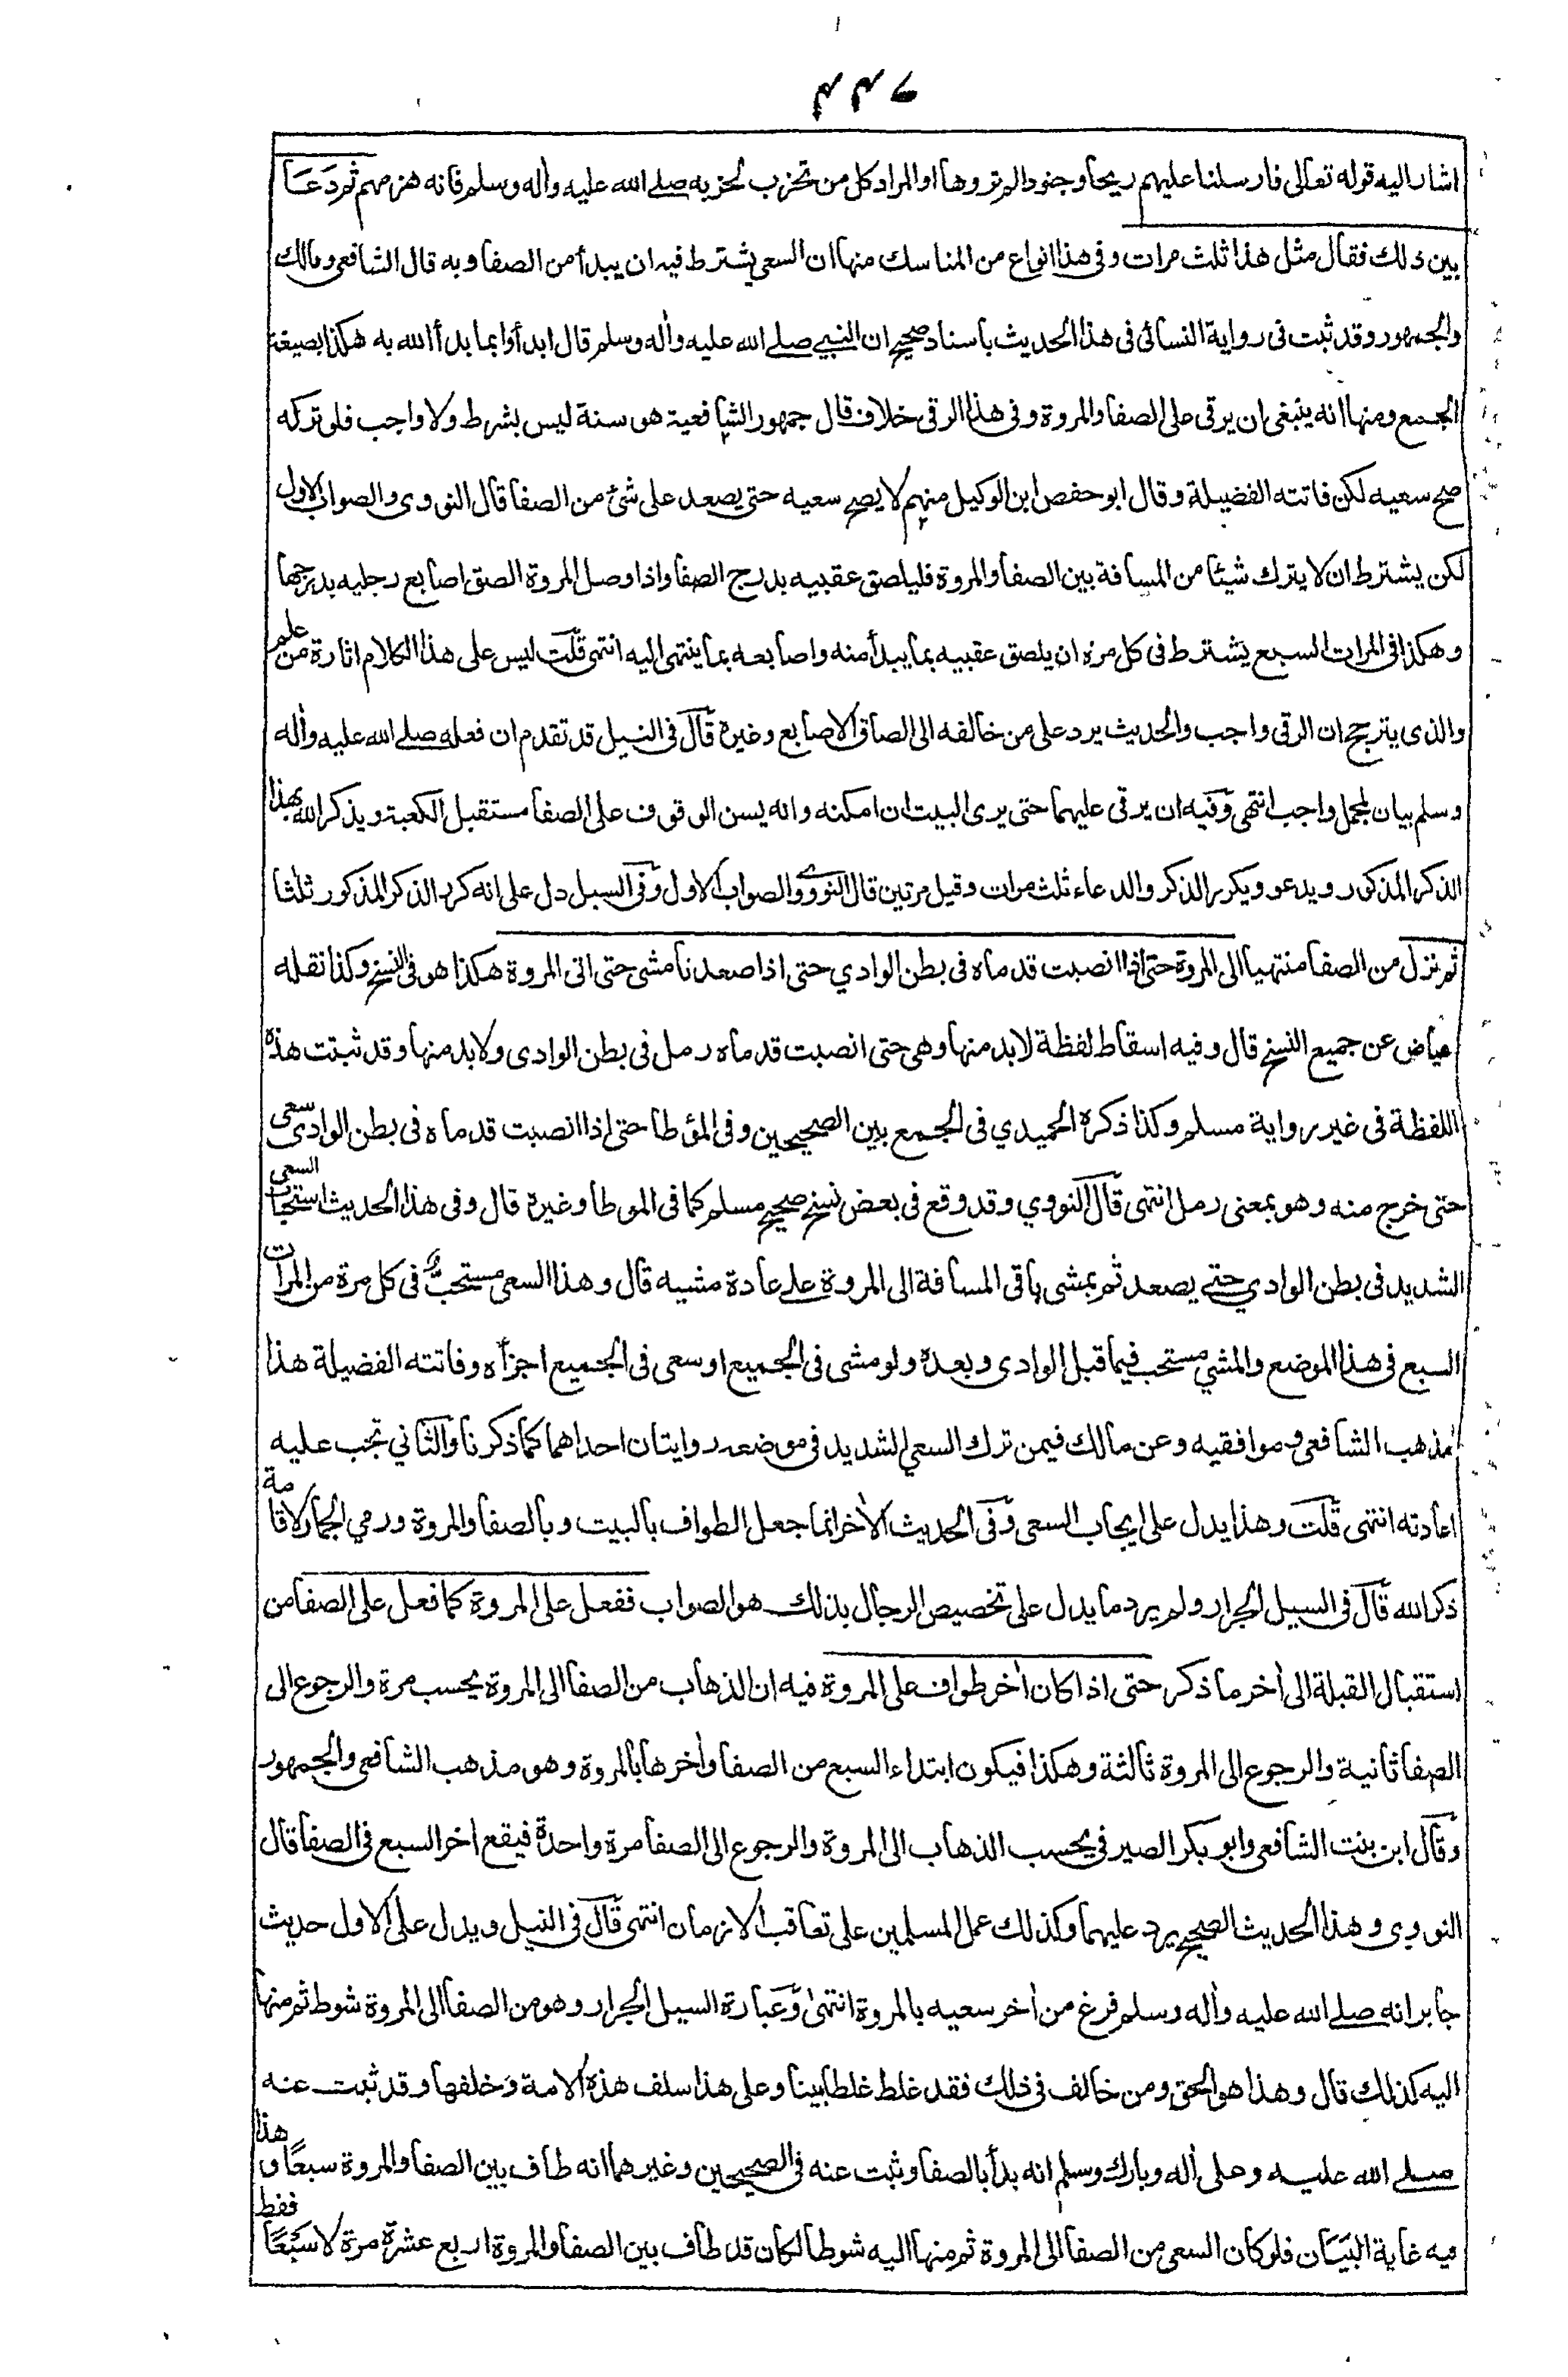 ٤٤٦
اشار اليه قوله تعالى فارسلنا عليهم ريحا وجنودا لم تروها او المراد كل من تحزب لحربه صلى الله عليه وأله وسلم فانه هزمهم ثم دعا
بين ذلك فقال مثل هذا ثلث مرات وفي هذا انواع من المناسك منها ان السعي يشترط فيه ان يبدأ من الصفا وبه قال الشافعي ومالك
والجمهور وقد ثبت في رواية النسائي في هذا الحديث باسناد صحيح ان النبي صلى الله عليه وأله وسلم قال ابدأوا بما بدأ الله به هكذا بصيغة
الجمع ومنها انه ينبغي ان يرقى على الصفا والمروة وفي هذا الرقى خلاف قال جمهور الشافعية هو سنة ليس بشرط ولا واجب فلو تركه
صح سعيه لكن فاتته الفضيلة وقال ابو حفص ابن الوكيل منهم لا يصح سعيه حتى يصعد على شئ من الصفا قال النووى والصواب الاول
لكن يشترط ان لا يترك شيئا من المسافة بين الصفا والمروة فليلصق عقبيه بدرج الصفا واذا وصل المروة الصق اصابع رجليه بدرجها
وهكذا فى المرات السبع يشترط فى كل مرة ان يلصق عقبيه بما يبدأ منه واصابعه بما ينتهى اليه انتهى قلت ليس على هذا الكلام اثارة من علم
والذى يترجح ان الرقى واجب والحديث يرد على من خالفه الى الصاق الاصابع وغيره قال فى النيل قد تقدم ان فعله صلى الله عليه وأله
وسلم بيان لمجمل واجب انتهى وفيه ان يرقى عليهما حتى يرى البيت ان امكنه وانه يسن الوقوف على الصفا مستقبل الكعبة ويذكر الله بهذا
الذكر المذكور ويدعو ويكرر الذكر والدعاء ثلث مرات وقيل مرتين قال النووى والصواب الاول وفى السبل دل على انه كرر الذكر المذكور ثلثا
ثم نزل من الصفا منتهيا الى المروة حتى اذا انصبت قدماه فى بطن الوادي حتى اذا صعدنا مشى حتى اتى المروة هكذا هو فى النسخ وكذا نقله
عياض عن جميع النسخ قال وفيه اسقاط لفظة لا بد منها وهى حتى انصبت قدماه رمل فى بطن الوادى ولا بد منها وقد ثبتت هذه
اللفظة فى غير رواية مسلم وكذا ذكره الحميدي فى الجمع بين الصحيحين وفى المؤطا حتى اذا انصبت قدماه فى بطن الوادى سعى
حتى خرج منه وهو بمعنى رمل انتهى قال النووي وقد وقع فى بعض نسخ صحيح مسلم كما فى الموطا وغيره قال وفى هذا الحديث استحباب السعى
الشديد فى بطن الوادي حتى يصعد ثم يمشى باقى المسافة الى المروة على عادة مشيه قال وهذا السعى مستحبٌ فى كل مرة من المرات
السبع فى هذا الموضع والمشي مستحب فيما قبل الوادى وبعده ولو مشى فى الجميع او سعى فى الجميع اجزأه وفاتته الفضيلة هذا
مذهب الشافعى وموافقيه وعن مالك فيمن ترك السعي الشديد فى موضعه روايتان احداهما كما ذكرنا والثاني تجب عليه
اعادته انتهى قلت وهذا يدل على ايجاب السعى وفى الحديث الأخر انما جعل الطواف بالبيت وبالصفا والمروة ورمي الجمار لاقامة
ذكر الله قال فى السيل الجرار ولم يرد ما يدل على تخصيص الرجال بذلك هو الصواب ففعل على المروة كما فعل على الصفا من
استقبال القبلة الى أخر ما ذكر حتى اذا كان أخر طواف على المروة فيه ان الذهاب من الصفا الى المروة يحسب مرة والرجوع الى
الصفا ثانية والرجوع الى المروة ثالثة وهكذا فيكون ابتداء السبع من الصفا وأخرها بالمروة وهو مذهب الشافعى والجمهور
وقال ابن بنت الشافعى وابو بكر الصيرفى يحسب الذهاب الى المروة والرجوع الى الصفا مرة واحدة فيقع اخر السبع فى الصفا قال
النووي وهذا الحديث الصحيح يرد عليهما وكذلك عمل المسلمين على تعاقب الازمان انتهى قال فى النيل ويدل على الاول حديث
جابر انه صلى الله عليه وأله وسلم فرغ من أخر سعيه بالمروة انتهى وعبارة السيل الجرار وهو من الصفا الى المروة شوط ثم منها
اليه كذلك قال وهذا هو الحق ومن خالف فى ذلك فقد غلط غلطا بينا وعلى هذا سلف هذه الامة وخلفها وقد ثبت عنه
صلى الله عليه وعلى أله وبارك وسلم انه بدأ بالصفا وثبت عنه فى الصحيحين وغيرهما انه طاف بين الصفا والمروة سبعًا و هذا
فيه غاية البيان فلو كان السعى من الصفا الى المروة ثم منها اليه شوطا لكان قد طاف بين الصفا والمروة اربع عشرة مرة لا سبعًا فقط